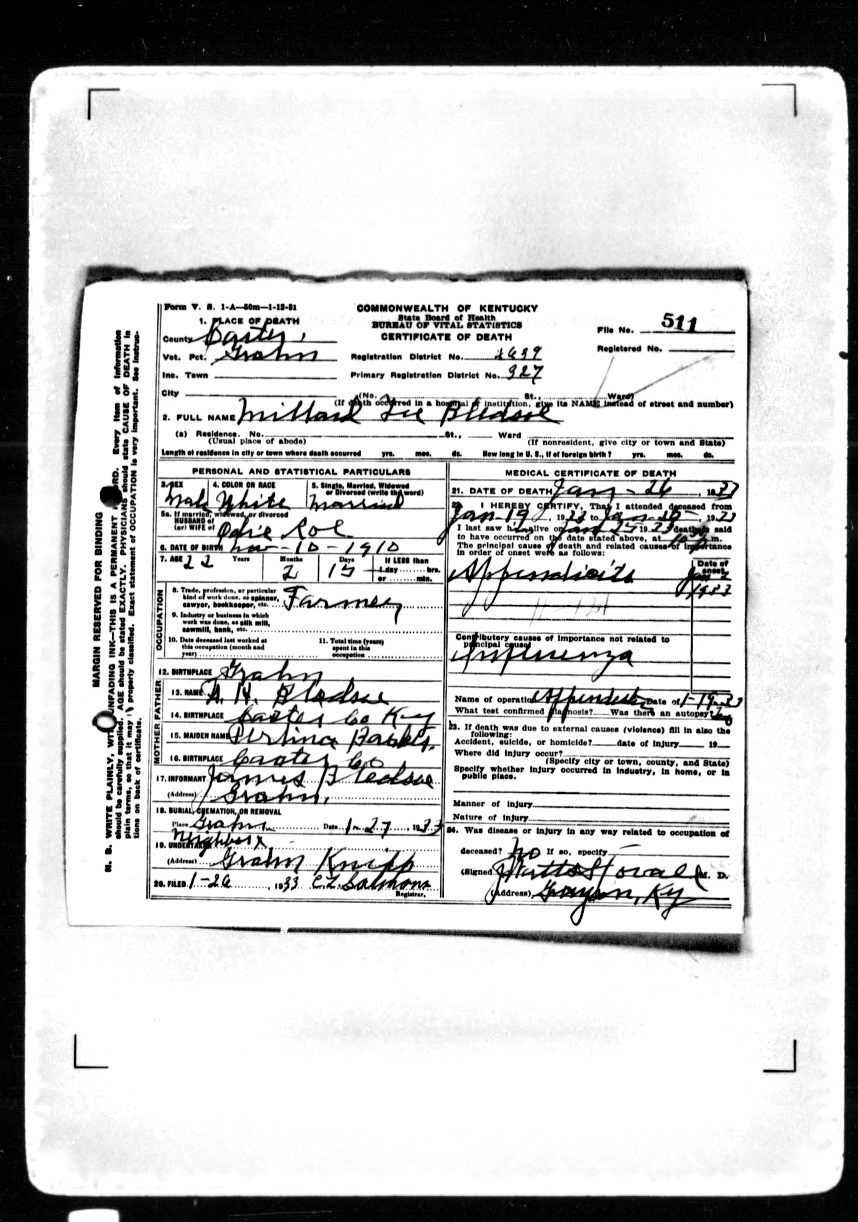 Form V. S. 1-A—50m—1-12-31
COMMONWEALTH OF KENTUCKY
State Board of Health
BUREAU OF VITAL STATISTICS
CERTIFICATE OF DEATH
File No. 511
Registered No.
1. PLACE OF DEATH
County Carter
Vot. Pct. Grahn
Registration District No.
Inc. Town
Primary Registration District No. 927
City (No. St., Ward)
(If death occurred in a hospital or institution, give its NAME instead of street and number)
2. FULL NAME Millard Bledsoe
(a) Residence. No. St., Ward
(Usual place of abode) (If nonresident, give city or town and State)
Length of residence in city or town where death occurred yrs. mos. ds. How long in U. S., if of foreign birth? yrs. mos. ds.
PERSONAL AND STATISTICAL PARTICULARS
3. SEX 4. COLOR OR RACE 5. Single, Married, Widowed or Divorced (write the word)
Male White Married
5a. If married, widowed, or divorced
HUSBAND of
(or) WIFE of Roe
6. DATE OF BIRTH Nov-10-1910
7. AGE 22 Years Months 2 Days 15 If LESS than 1 day hrs. or min.
OCCUPATION
8. Trade, profession, or particular kind of work done, as spinner, sawyer, bookkeeper, etc. Farmer
9. Industry or business in which work was done, as silk mill, sawmill, bank, etc.
10. Date deceased last worked at this occupation (month and year)
11. Total time (years) spent in this occupation
12. BIRTHPLACE Grahn
FATHER
13. NAME A. H. Bledsoe
14. BIRTHPLACE Carter Co Ky
MOTHER
15. MAIDEN NAME
16. BIRTHPLACE Carter Co
17. INFORMANT James Bledsoe
(Address) Grahn,
18. BURIAL, CREMATION, OR REMOVAL
Place Grahn Date 1-27 1933
19. UNDERTAKER Neighbors
(Address) Grahn
20. FILED 1-26, 1933 C. L. Salmons
Registrar.
MEDICAL CERTIFICATE OF DEATH
21. DATE OF DEATH Jan-26, 1933
22. I HEREBY CERTIFY, That I attended deceased from
Jan-19, 1933 to Jan- , 1933
I last saw h alive on Jan 25, 1933 death is said
to have occurred on the date stated above, at m.
The principal cause of death and related causes of importance
in order of onset were as follows:
Date of onset
Appendicitis Jan
1933
Contributory causes of importance not related to
principal cause:
Influenza
Name of operation Date of 1-19-33
What test confirmed diagnosis? Was there an autopsy? No
23. If death was due to external causes (violence) fill in also the
following:
Accident, suicide, or homicide? date of injury 19
Where did injury occur?
(Specify city or town, county, and State)
Specify whether injury occurred in industry, in home, or in
public place.
Manner of injury
Nature of injury
24. Was disease or injury in any way related to occupation of
deceased? No If so, specify
(Signed) Watts Stovall M. D.
(Address) Grayson, Ky
MARGIN RESERVED FOR BINDING
N. B. WRITE PLAINLY, WITH UNFADING INK—THIS IS A PERMANENT RECORD. Every item of information
should be carefully supplied. AGE should be stated EXACTLY. PHYSICIANS should state CAUSE OF DEATH in
plain terms, so that it may be properly classified. Exact statement of OCCUPATION is very important. See instruc-
tions on back of certificate.